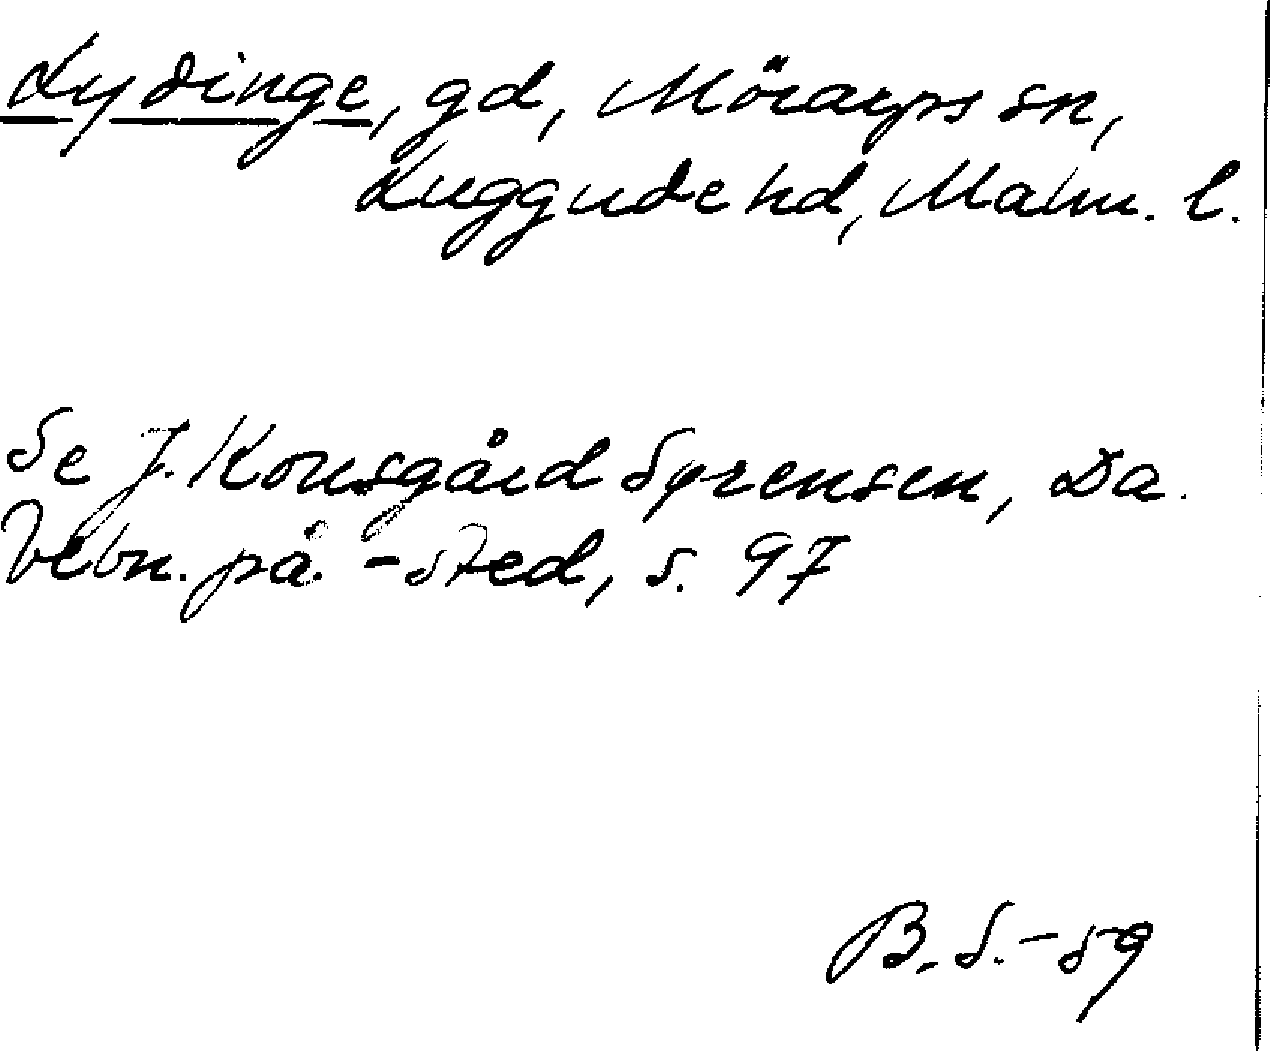 Lydinge, gd, Mörarps sn,
Luggude hd, Malm. l.
Se J. Kousgård Sørensen, Da.
bebn. på -sted, s. 97
B. S. - 59